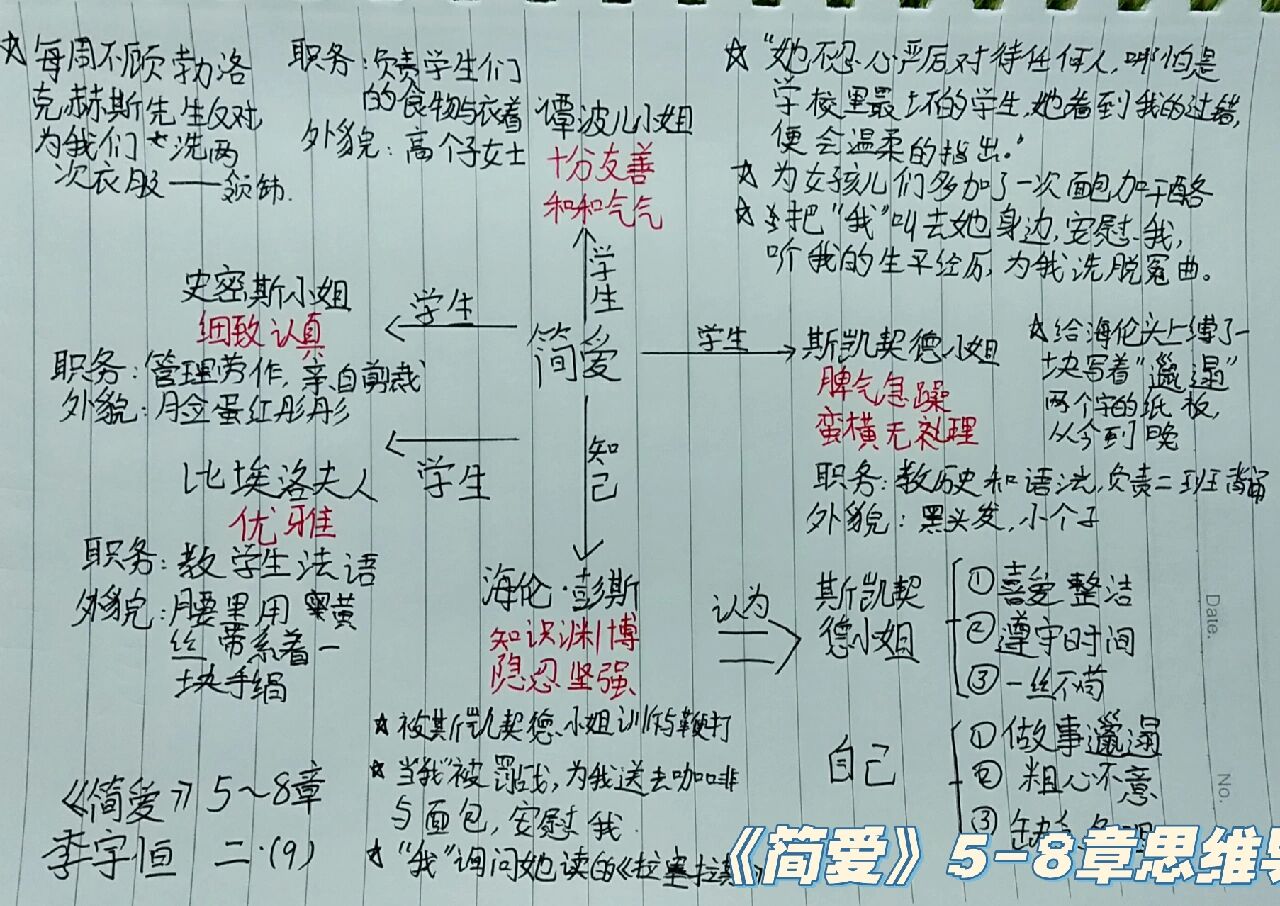 ☆ 每周不顾勃洛
克赫斯先生反对
为我们女洗两
次衣服——领饰.
职务:负责学生们
的食物与衣着
外貌:高个子女士
谭波儿小姐
十分友善
和和气气
☆ "她不忍心严厉对待任何人,哪怕是
学校里最坏的学生,她看到我的过错,
便会温柔的指出."
☆ 为女孩儿们多加了一次面包加干酪
☆ 把"我"叫去她身边,安慰我,
听我的生平经历,为我洗脱冤曲。
学生
史密斯小姐
细致认真
职务:管理劳作,亲自剪裁
外貌:脸蛋红彤彤
学生
简爱
学生
斯凯契德小姐
脾气急躁
蛮横无礼理
☆ 给海伦头上缚了一
块写着"邋遢"
两个字的纸板,
从今到晚
职务:教历史和语法,负责二班背诵
外貌:黑头发,小个子
学生
比埃洛夫人
优雅
职务:教学生法语
外貌:腰里用 黄
丝带系着一
块手绢
知己
海伦·彭斯
知识渊博
隐忍坚强
认为
斯凯契
德小姐
①喜爱整洁
②遵守时间
③一丝不苟
自己
①做事邋遢
②粗心不意
③缺
☆ 被斯凯契德小姐训斥与鞭打
☆ 当"我"被罚战,为我送去咖啡
与面包,安慰我
☆ "我"询问她读的《拉塞拉
《简爱》5~8章
李宇恒 二.(9)
Date.
No.
《简爱》5-8章思维导